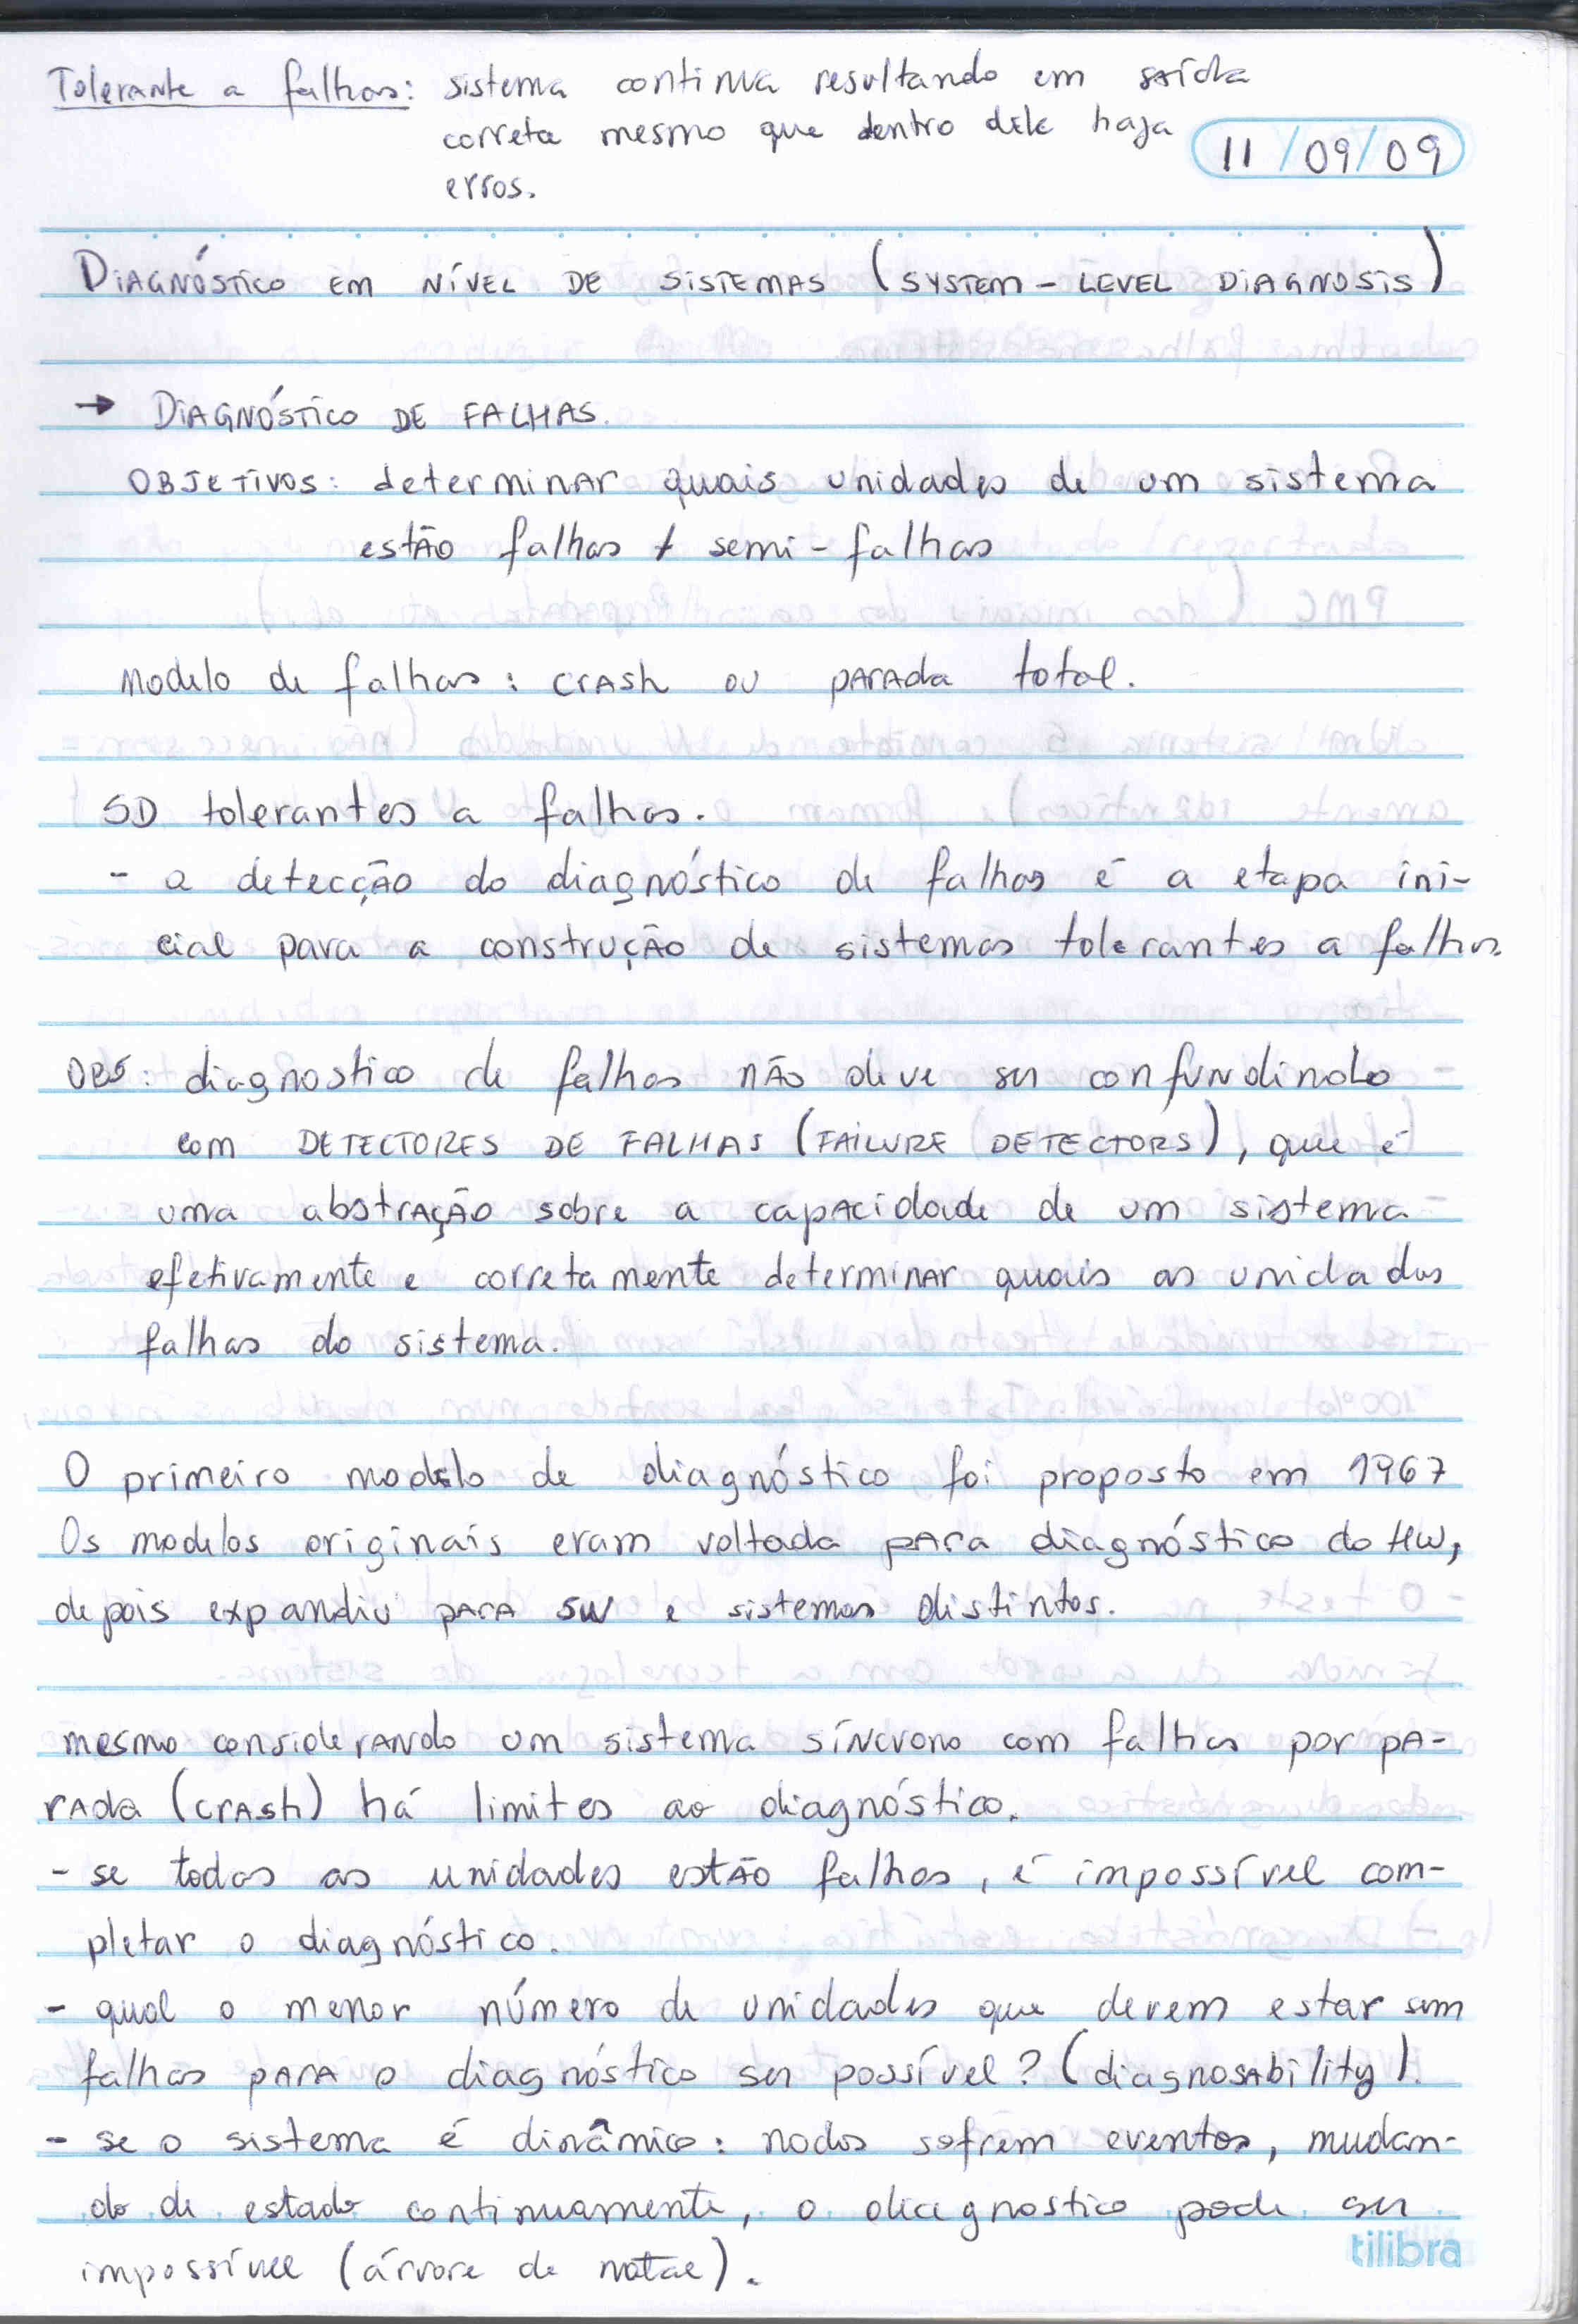 Tolerante a falhas: sistema continua resultando em saída
correta mesmo que dentro dele haja
erros.
11/09/09
DIAGNÓSTICO EM NÍVEL DE SISTEMAS (SYSTEM-LEVEL DIAGNOSIS)
→ DIAGNÓSTICO DE FALHAS.
OBJETIVOS: determinar quais unidades de um sistema
estão falhas / semi-falhas
Modelo de falhas: crash ou parada total.
SD tolerantes a falhas.
- a detecção do diagnóstico de falhas é a etapa ini-
cial para a construção de sistemas tolerantes a falhas.
OBS: diagnostico de falhas não deve ser confundindo
com DETECTORES DE FALHAS (FAILURE DETECTORS), que é
uma abstração sobre a capacidade de um sistema
efetivamente e corretamente determinar quais as unidades
falhas do sistema.
O primeiro modelo de diagnóstico foi proposto em 1967
Os modelos originais eram voltada para diagnóstico do HW,
depois expandiu para SW e sistemas distintos.
mesmo considerando um sistema síncrono com falhas por pa-
rada (crash) há limites ao diagnóstico.
- se todas as unidades estão falhas, é impossível com-
pletar o diagnóstico.
- qual o menor número de unidades que devem estar sem
falhas para o diagnóstico ser possível? (diagnosability).
- se o sistema é dinâmico: nodos sofrem eventos, mudan-
do de estado continuamente, o diagnostico pode ser
impossível (árvore de natal).
tilibra